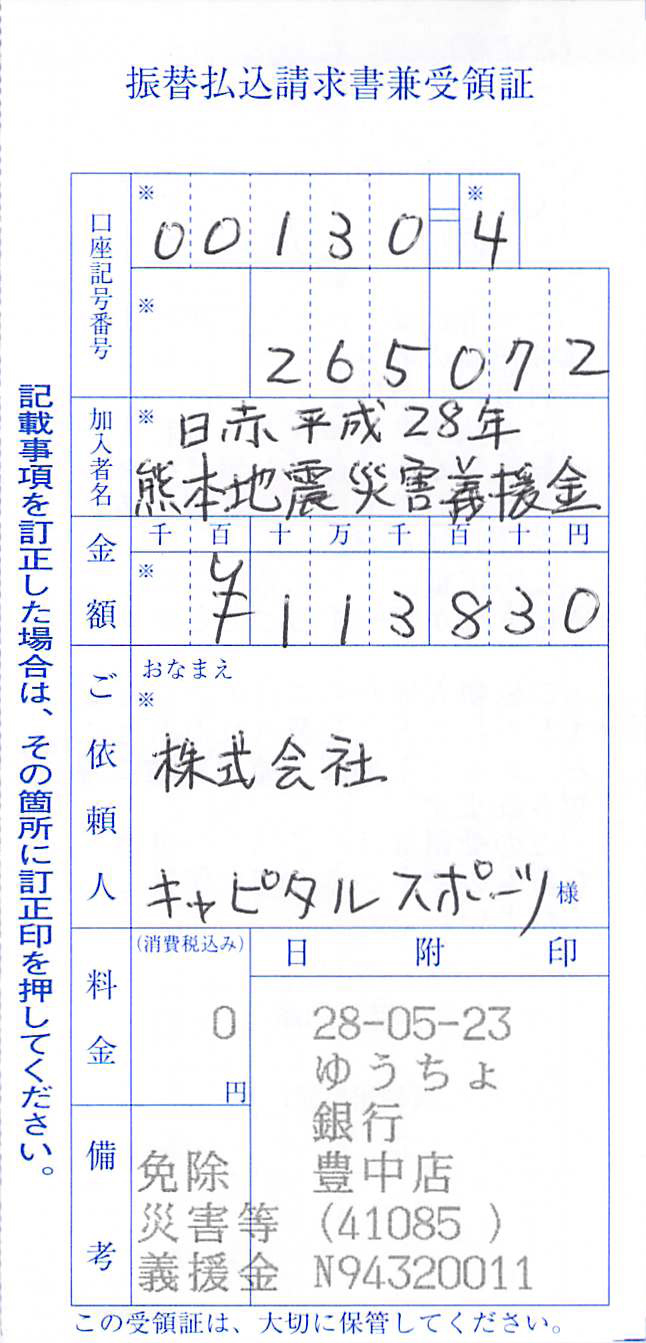 振替払込請求書兼受領証
口座記号番号
※ ※
00130 4
※
265072
加入者名
※ 日赤平成28年
熊本地震災害義援金
金額
千 百 十 万 千 百 十 円
※
¥113830
ご依頼人
おなまえ
※
株式会社
キャピタルスポーツ 様
料金
(消費税込み)
0
円
日附印
28-05-23
ゆうちょ
銀行
豊中店
(41085 )
N94320011
備考
免除
災害等
義援金
記載事項を訂正した場合は、その箇所に訂正印を押してください。
この受領証は、大切に保管してください。